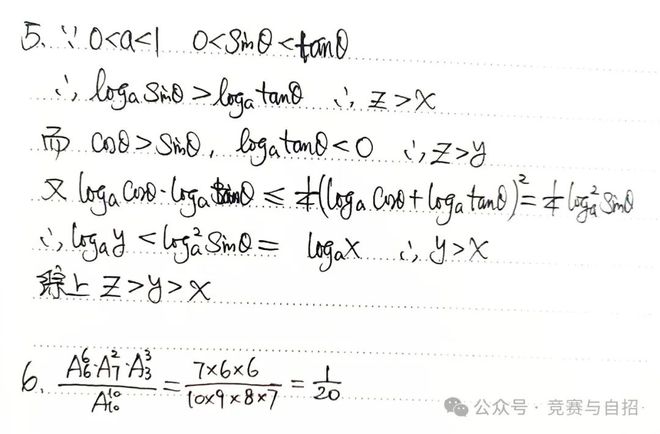 5. ∵ 0<a<1 0<sinθ<tanθ
∴ logₐsinθ>logₐtanθ ∴ z>x
而 cosθ>sinθ, logₐtanθ<0 ∴ z>y
又 logₐcosθ·logₐθ ≤ ¼(logₐcosθ+logₐtanθ)²=¼logₐ²sinθ
∴ logₐy<logₐ²sinθ= logₐx ∴ y>x
综上 z>y>x
6. A₆⁶·A₇²·A₃³/A₁₀¹⁰ = 7×6×6/10×9×8×7 = 1/20
公众号·竞赛与自招